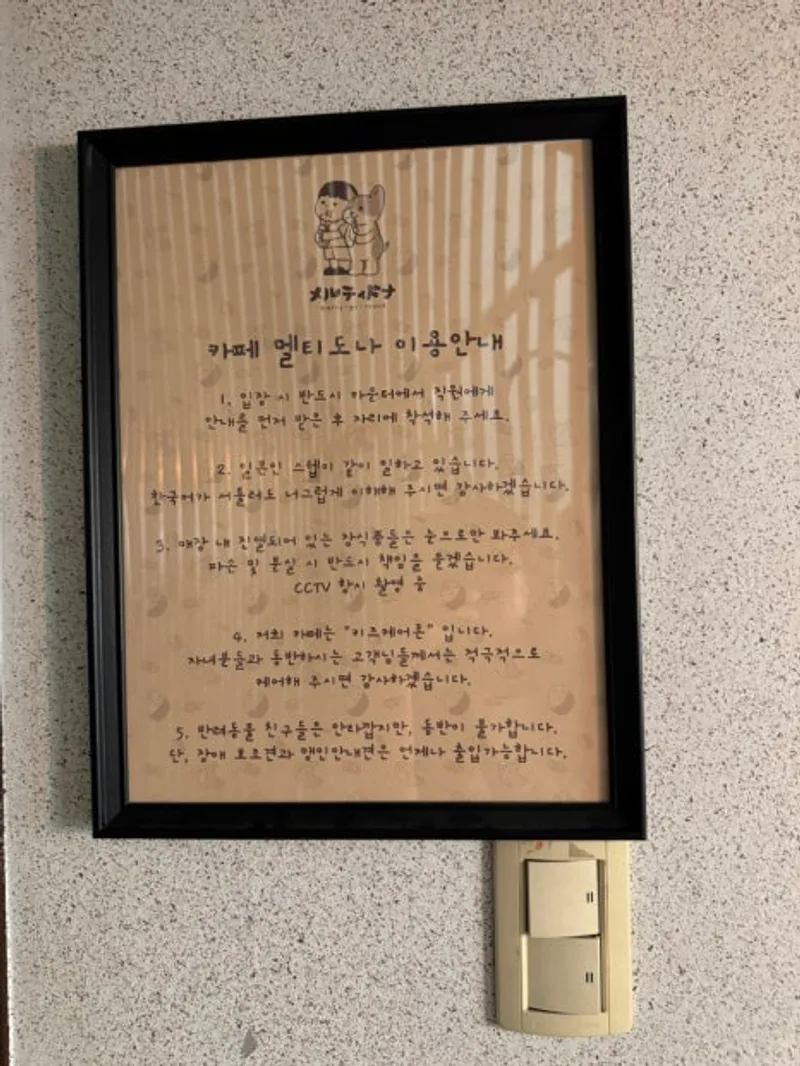 メルティドナ
카페 멜티도나 이용안내
1. 입장 시 반드시 카운터에서 직원에게
안내를 먼저 받은 후 자리에 착석해 주세요.
2. 일본인 스텝이 같이 일하고 있습니다.
한국어가 서툴러도 너그럽게 이해해 주시면 감사하겠습니다.
3. 매장 내 진열되어 있는 장식품들은 눈으로만 봐주세요.
파손 및 분실 시 반드시 책임을 묻겠습니다.
CCTV 항시 촬영 중
4. 저희 카페는 "키즈케어존" 입니다.
자녀분들과 동반하시는 고객님들께서는 적극적으로
케어해 주시면 감사하겠습니다.
5. 반려동물 친구들은 안타깝지만, 동반이 불가합니다.
단, 장애 보조견과 맹인안내견은 언제나 출입가능합니다.